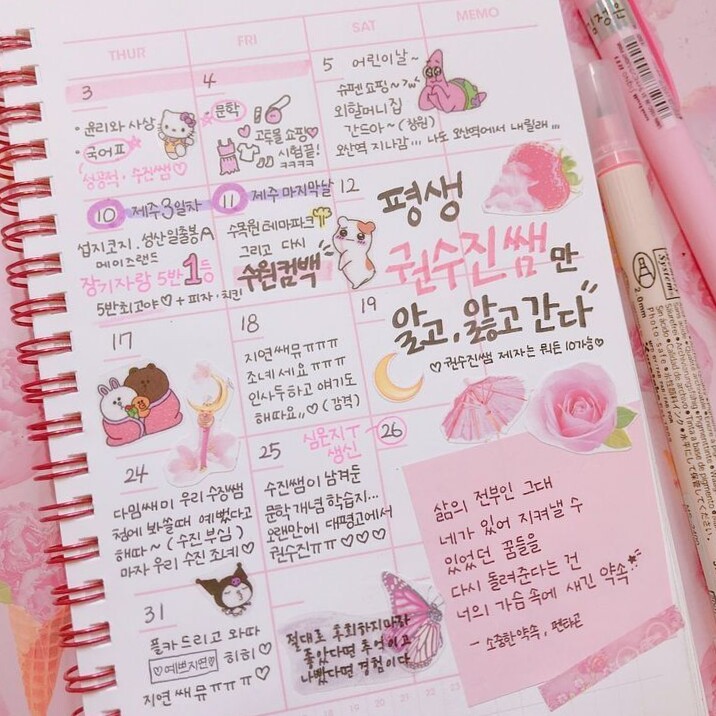 THUR
FRI
SAT
MEMO
3
• 윤리와 사상
• 국어표
성공적 · 수진쌤♡
4
문학
고토몰 쇼핑♡
시험끝!
ㅋㅋㅋㅋ
5 어린이날~
슈펜 쇼핑~
외할머니집
간드아~ (창원)
오산역 지나감... 나도 오산역에서 내릴래...
10 제주 3일차
섭지코지. 성산일출봉A
메이즈랜드
장기자랑 5반 1등
5반최고야♡ + 피자·치킨
11 제주 마지막날
수목원 테마파크
그리고 다시
수원컴백
12
평생
권수진쌤만
알고, 앓고 간다
♡ 권수진쌤 제자는 뭐든 10가능♡
17
18
지연쌔뮤ㅠㅠㅠ
소녀세요ㅠㅠㅠ
인사두하고 얘기도
해따요,,♡ (감격)
19
24
다임쌔미 우리 수상쌤
첨에 봐쓸때 예뻤다고
해따~ (수진 부심)
마자 우리 수진 소녀♡
25
수진쌤이 남겨둔
문학개념 학습지...
오랜만에 대평고에서
권수진ㅠㅠ♡♡♡
심은지T
생신
26
31
플카드리고 와따
♡예쁜지연♡ 히히♡
지연쌔뮤ㅠㅠㅠ♡
절대로 후회하지마라
좋았다면 추억이고
나빴다면 경험이다
삶의 전부인 그대
네가 있어 지켜낼 수
있었던 꿈들을
다시 돌려준다는 건
너의 가슴 속에 새긴 약속
- 소중한약속, 펜타곤
정은
A
System
2.0mm